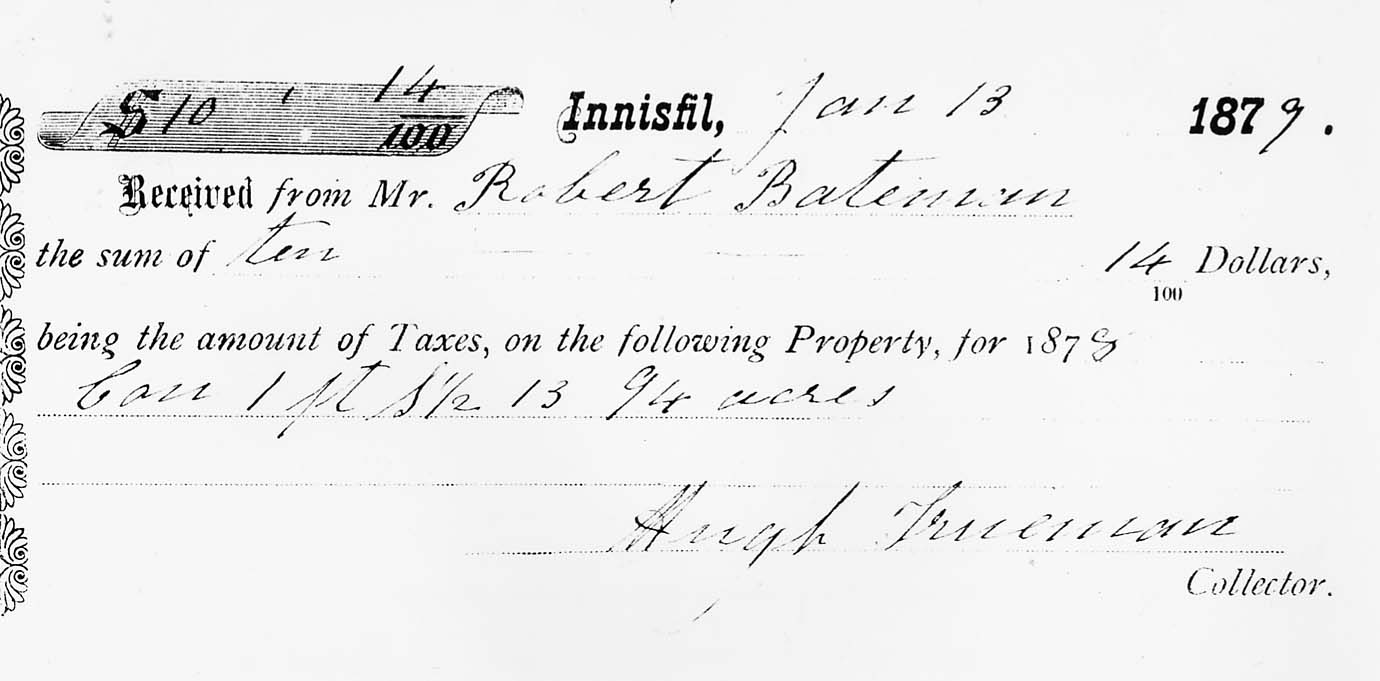 $10 14/100 Innisfil, Jan 13 1879.
Received from Mr. Robert Bateman
the sum of ten 14/100 Dollars,
being the amount of Taxes, on the following Property, for 1878
Con 1 pt S 1/2 13 94 acres
Hugh Trueman
Collector.